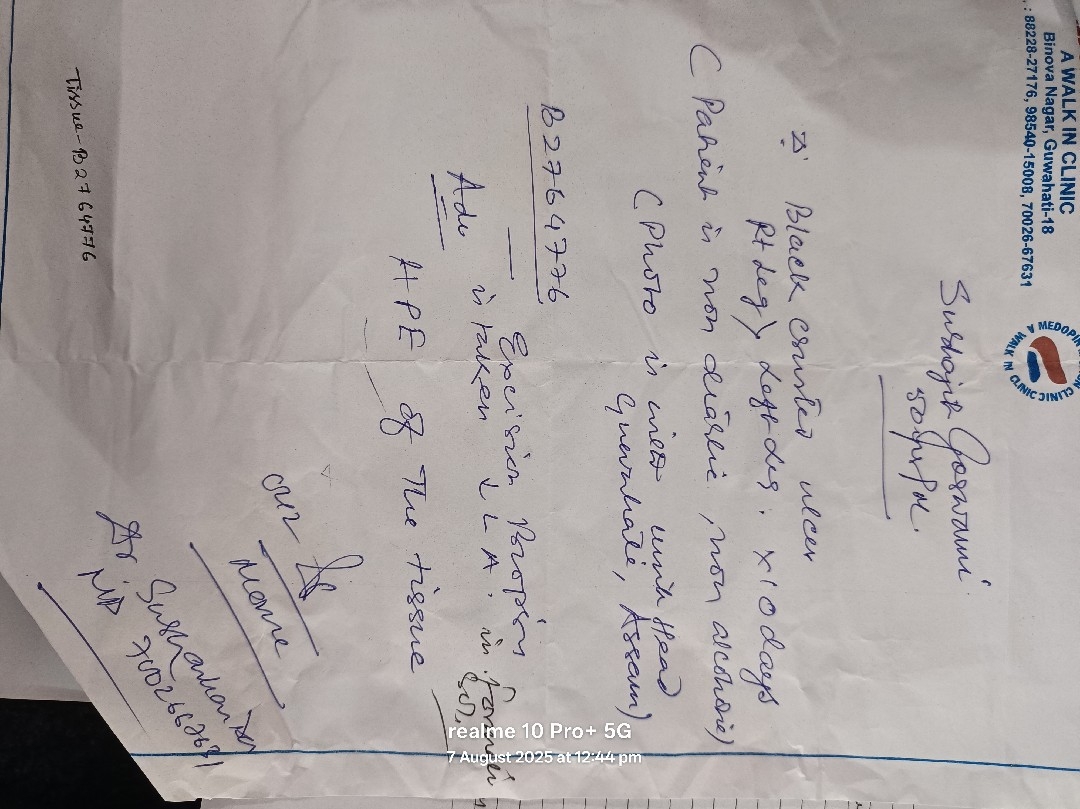 A WALK IN CLINIC
Binova Nagar, Guwahati-18
: 88228-27176, 98540-15008, 70026-67631
A WALK IN CLINIC
Goswami
50yrs/M
Black crusted ulcer
Rt leg > Left leg. x 10 days
(Patient is non diabetic, non alcoholic)
(Photo is with unit Head
Guwahati, Assam)
B2764776
Excision Biopsy
is taken LA. in
Adv
HPE of The tissue
Dr
MD 7002667631
Tissue-B2764776
realme 10 Pro+ 5G
7 August 2025 at 12:44 pm